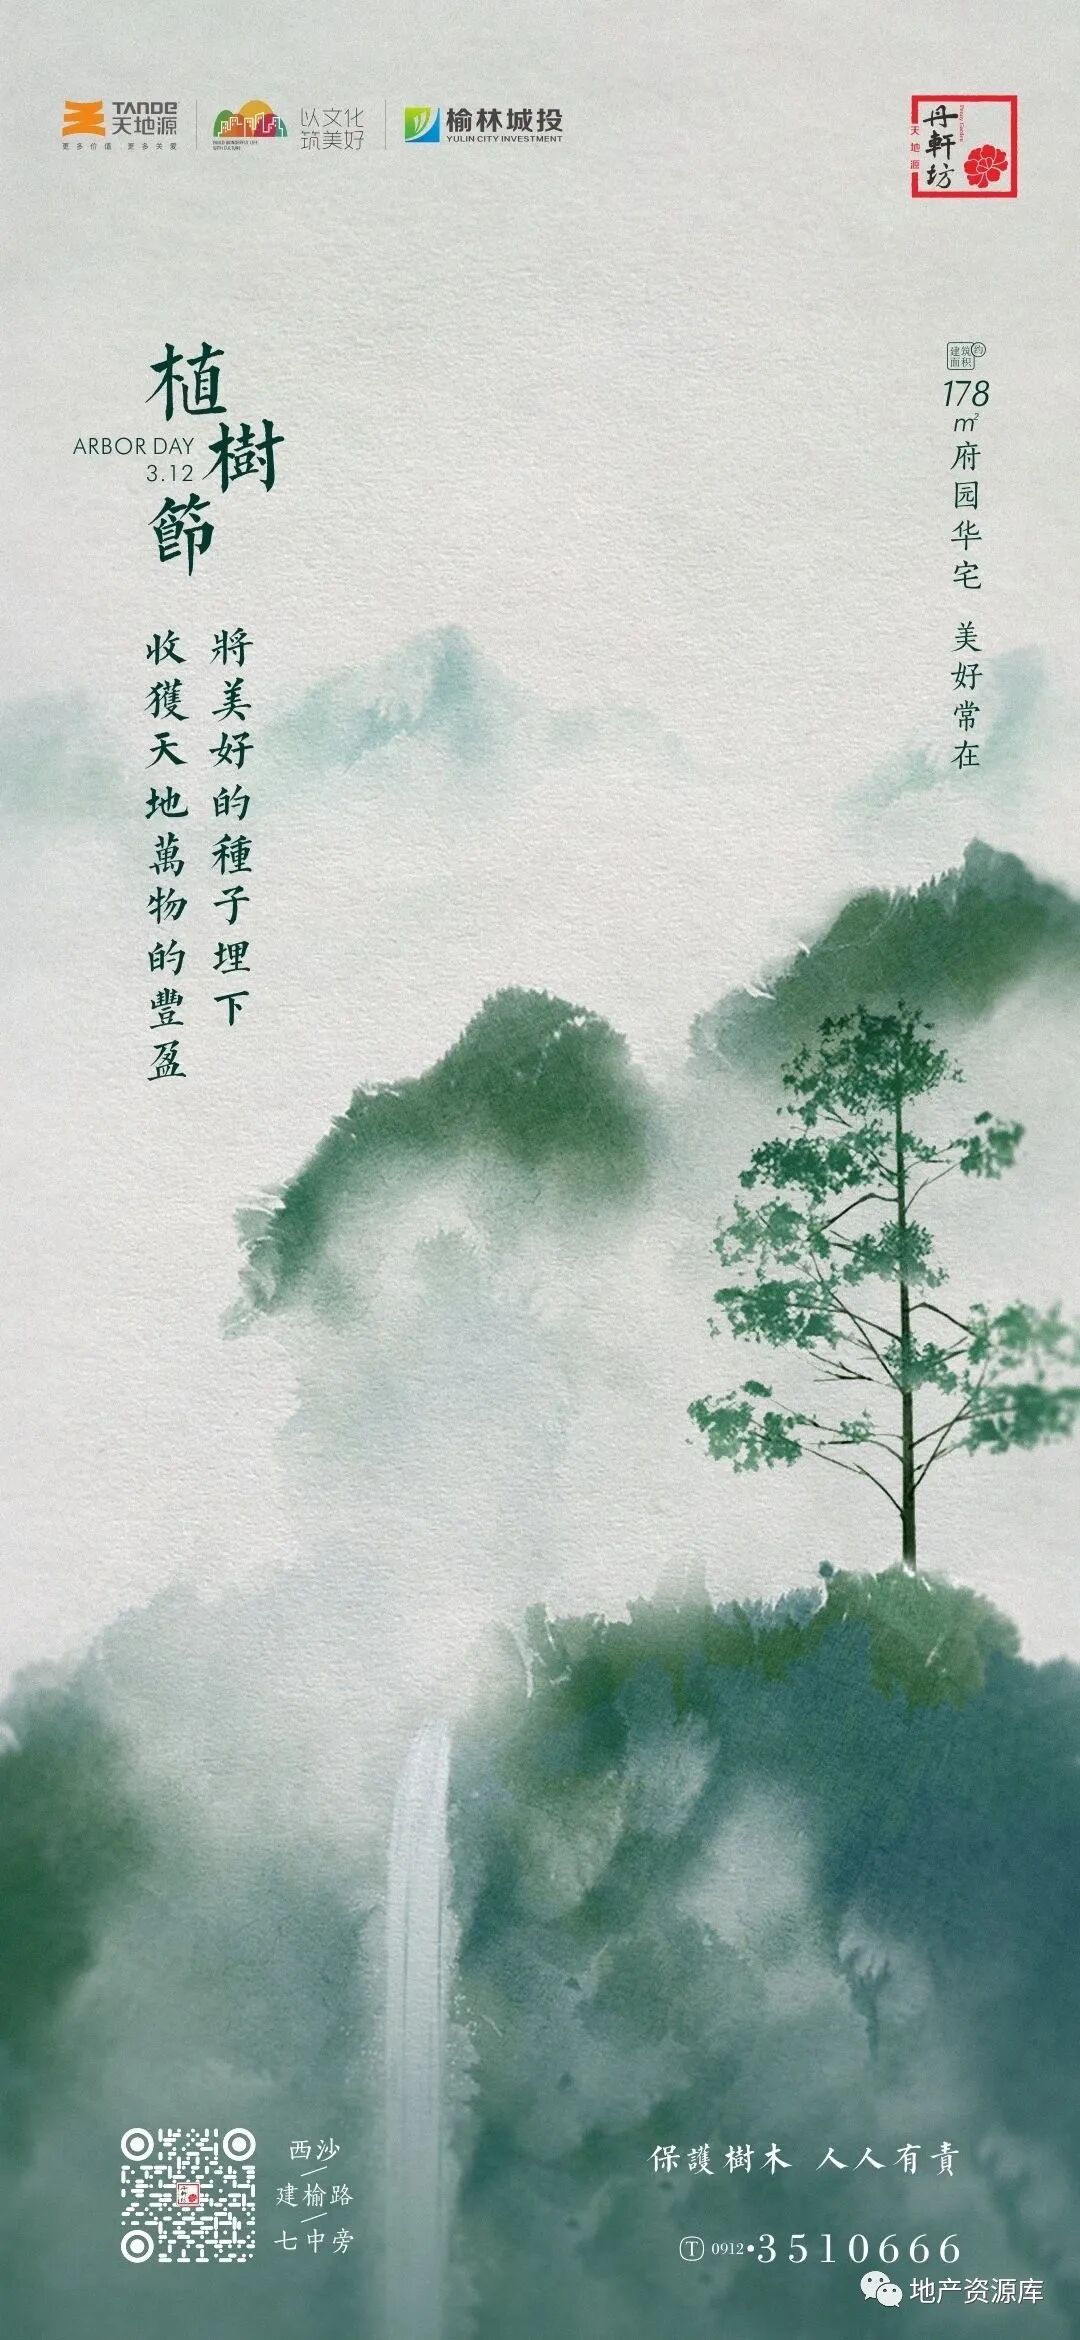 TANDE
天地源
更多价值 更多关爱
BUILD WONDERFUL LIFE
WITH CULTURE
以文化
筑美好
榆林城投
YULIN CITY INVESTMENT
丹軒坊
天地源
植樹節
ARBOR DAY
3.12
將美好的種子埋下
收獲天地萬物的豐盈
建筑面积约
178
m²
府园华宅 美好常在
西沙
建榆路
七中旁
保護樹木 人人有責
T 0912•3510666
地产资源库